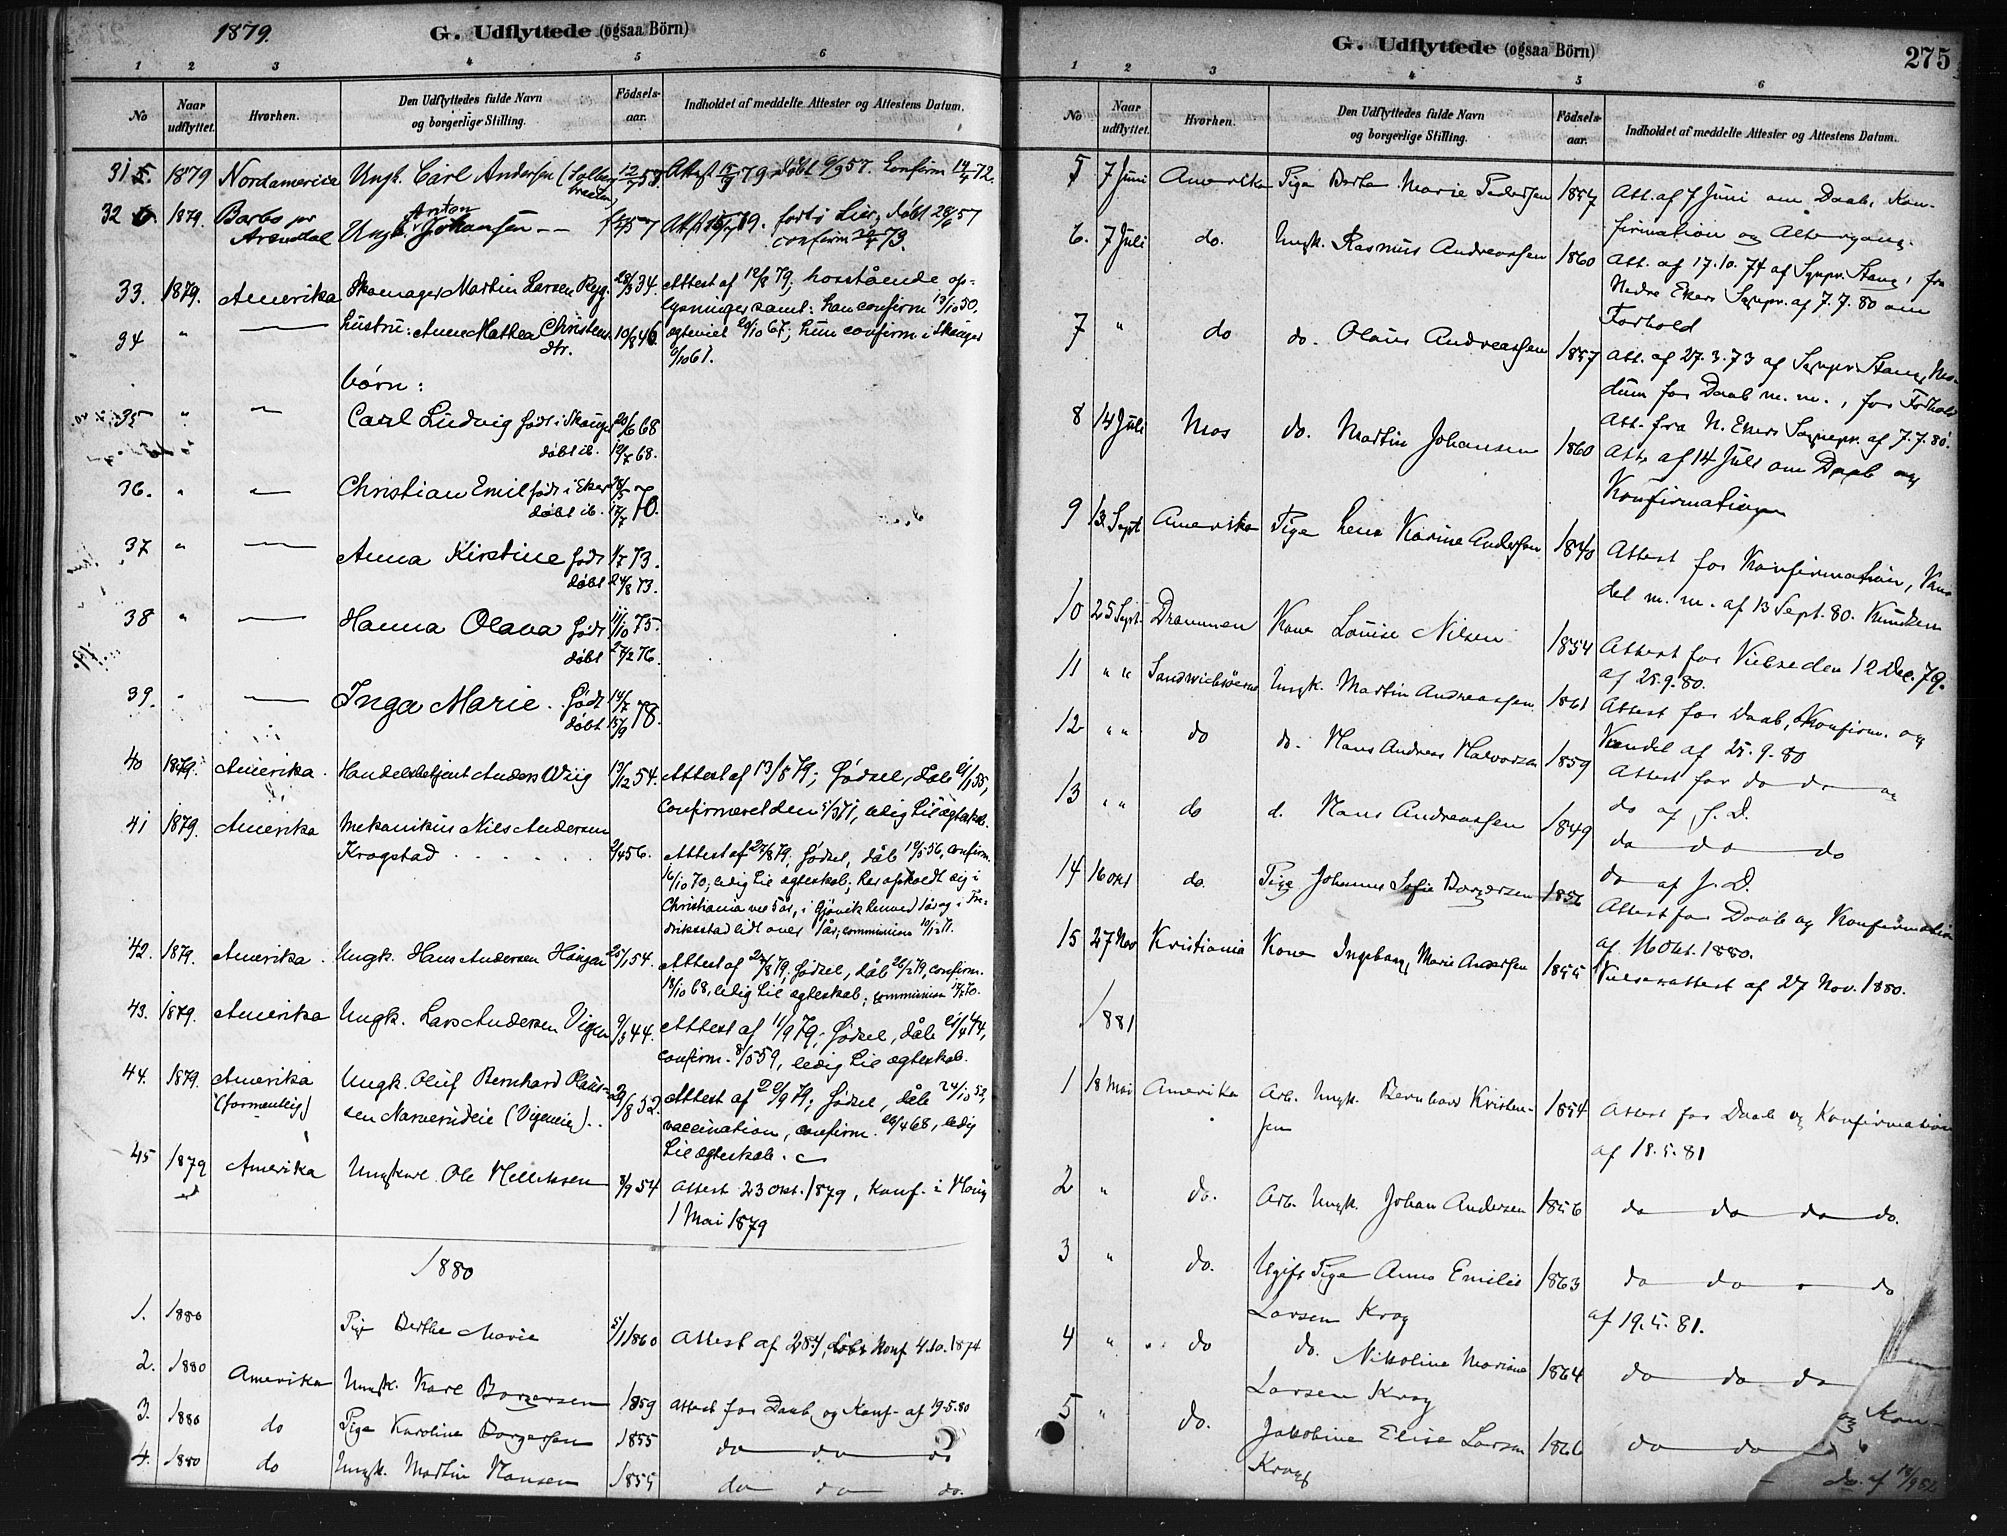 1879.
G. Udflyttede (ogsaa Börn)
1 2 3 4 5 6
No
Naar udflyttet.
Hvorhen.
Den Udflyttedes fulde Navn og borgerlige Stilling.
Fødsels-aar.
Indholdet af meddelte Attester og Attestens Datum.
31 5. 1879 Nordamerica Ungk. Carl Andersen
Attest 79 døbt 6/9 57. Confirm 14/4 72.
32 6. 1879. Barbo pr Arendal Ungk. Anton Johansen
født i Lier, døbt 28/6 57
confirm 73.
33. 1879. Amerika Skomager Martin Larsen Ryg. 28/3 34. Attest af 12/8 79, hosstående op-
lysninger samt: han confirm 13/10 50.
34 " — hustru: Anne Mathea Christens-dtr. 10/8 46. egteviet 20/10 67; hun confirm i Skauger
6/10 61.
börn:
35 " — Carl Ludvig født i Skauger 20/6 68
døbt ib. 19/7 68.
36. " — Christian Emil født i Eker 28/5
døbt ib. 17/7 70.
37 " — Anna Kirstine født 1/7 73.
døbt 24/8 73.
38 " — Hanna Olava født 11/10 75.
døbt 27/2 76.
39. " — Inga Marie. født 14/7
døbt 15/9 78.
40 1879. Amerika. Handelsbetjent Anders Wiig 13/12 54. Attest af 13/8 79; fødsel, dåb 1/1 55,
confirmeret den 5/3 71, ledig til egteskab.
41 1879. Amerika Mekanikus Nils Andersen
Krogstad 2/4 56. Attest af 27/8 79, fødsel, dåb 12/5 56, confirm.
16/10 70; ledig til egteskab; har opholdt sig i
Christiania ved 5 år, i Gjøvik henved 1 år og i Fre-
driksstad lidt over 1 år; communion
42. 1879. Amerika. Ungk. Hans Andersen Haugan 25/1 54. Attest af 27/8 79, fødsel, dåb confirm.
18/10 68, ledig til egteskab; communion
43. 1879. Amerika Ungk. Lars Andersen Vigen 9/3 44. Attest af 11/9 79; fødsel, dåb 21/4 44,
confirm. 8/5 59, ledig til egteskab.
44. 1879. Amerika (formentlig) Ungk. Oluf Bernhard Olaus-
sen Narverudeie (Vigeneie). 29/8 52. Attest af 20/9 79; fødsel, dåb 24/10 52,
vaccination, confirm. 26/4 68, ledig
til egteskab.
45 1879 Amerika Ungkarl Ole Mellebsen 8/9 54 Attest 23 Okt. 1879, Konf. i Moug
1 Mai 1879
1880
1. 1880 Pige Berthe Marie 5/1 1860 Attest af 28.4, Konf 4.10.1874
2. 1880 Amerika Ungk. Karl Borgersen 1859 Attest for Daab og Konf. af 19.5.80
3. 1880 do Pige Karoline Borgersen 1855 do do do
4. 1880 do Ungk. Martin Hansen 1855 do do do.
G. Udflyttede (ogsaa Börn)
275
1 2 3 4 5 6
No
Naar udflyttet.
Hvorhen.
Den Udflyttedes fulde Navn og borgerlige Stilling.
Fødsels-aar.
Indholdet af meddelte Attester og Attestens Datum.
5 7 Juni Amerika Pige Berte Marie Pedersen 1857 Att. af 7 Juni om Daab, Kon-
firmation og Altergang.
6. 7 Juli do. Ungk. Rasmus Andreassen 1860 Att. af 17.10.74 af Sgnpr. Stang, fra
Nedre Ekers Sgnpr. af 7.7.80 om
Forhold
7 " do do. Olaus Andreassen 1857 Att. af 27.3.73 af Sgnpr. Stang, Mo-
dum for Daab m. m., for Forhold
Att. fra N. Ekers Sognepr. af 7.7.80.
8 14 Juli Mos do. Martin Johansen 1860 Att. af 14 Juli om Daab og
Konfirmation
9 13 Sept. Amerika Pige Lena Karine Andersen 1840 Attest for Konfirmation, Van-
del m. m. af 13 Sept. 80.
10 25 Sept. Drammen Kone Louise Nilsen 1854 Attest for Vielse den 12 Dec. 79.
af 25.9.80.
11 " " Sandwichöerne Ungk. Martin Andreassen. 1861 Attest for Daab, Konfirm. og
Vandel af 25.9.80
12 " " do do. Hans Andreas Halvorsen 1859 Attest for do do og
do af s. D.
13 " " do d. Hans Andreassen 1849 do do do
do af s. D.
14 16 Okt do. Pige Johanne Sofie Borgersen 1856 Attest for Daab og Konfirmation
af 16 Okt. 1880.
15 27 Nov Kristiania Kone Ingeborg Marie Andersen 1855 Vielsesattest af 27 Nov. 1880.
1881
1 18 Mai Amerika Arb. Ungk. Bernhard Kristen-
sen 1854 Attest for Daab og Konfirmation
af 18.5.81
2 " do. Arb. Ungk. Johan Andersen 1856 do do do do.
3 " do. Ugift Pige Anne Emilie
Larsen Krog 1863 do do do
af 19.5.81.
4 " do do. Nikoline Mariane
Larsen Krog 1864 do do do
5 " do. Jakobine Elise Larsen
Krog 1866 do do
og Kon-
do. af